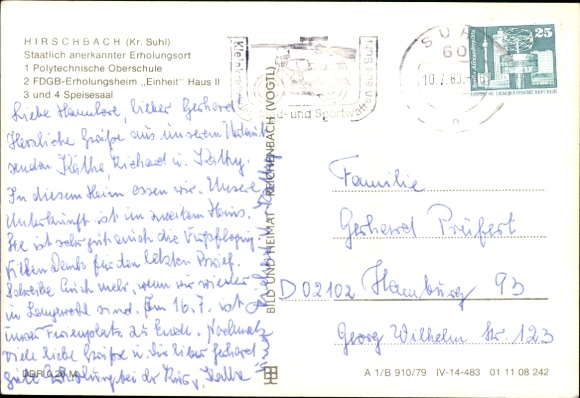 HIRSCHBACH (Kr. Suhl)
Staatlich anerkannter Erholungsort
1 Polytechnische Oberschule
2 FDGB-Erholungsheim „Einheit" Haus II
3 und 4 Speisesaal
Liebe Hannelore, lieber Gerhard!
Herzliche Grüße aus unserem Urlaub
senden Käthe, Richard u. Kathy.
In diesem Heim essen wir. Unsere
Unterkunft ist im zweiten Haus.
Sie ist sehr gut auch die Verpflegung.
Vielen Dank für den letzten Brief.
Schreibe Euch mehr, wenn wir wieder
in Langewohl sind. Am 16.7. ist
unser Ferienplatz zu Ende. Nochmals
viele liebe Grüße u. Dir lieber Gerhard
gute Erholung bei der Kur, Käthe
DDR 0,20 M
BILD UND HEIMAT REICHENBACH (VOGTL)
SUHL
60
10.7.83
25
Jagd- und Sportwaffen
Familie
Gerhard Prüfert
D 02102 Hamburg 93
Georg Wilhelm Str. 123
A 1/B 910/79 IV-14-483 01 11 08 242